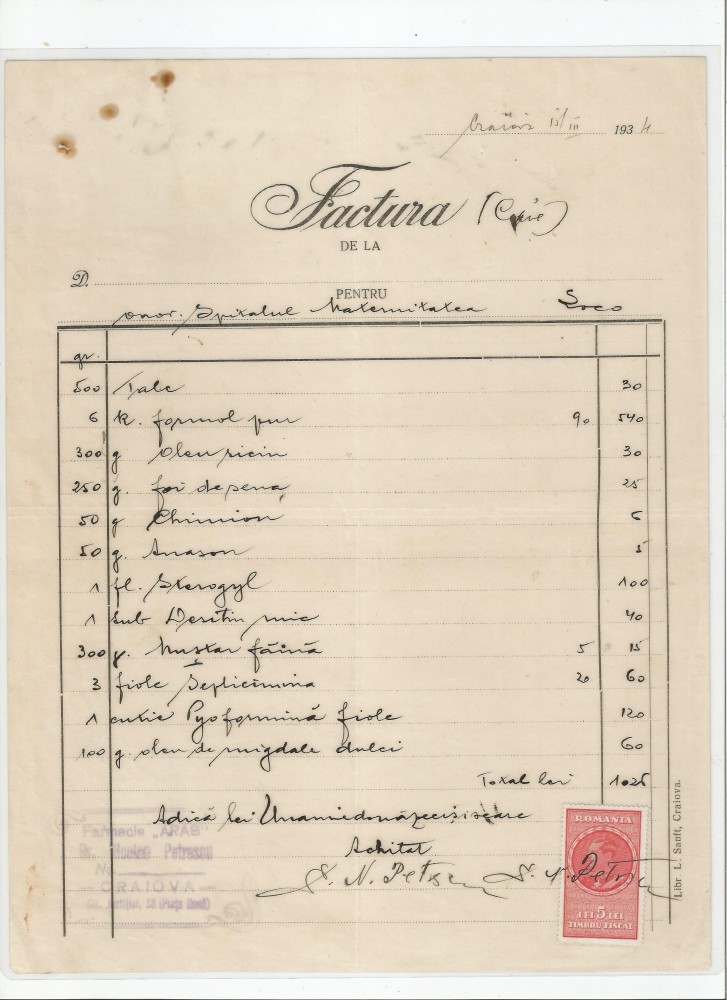 Craiova 15/III 1934
Factura (Copie)
DE LA
D.
PENTRU
onor. Spitalul Maternitatea Loco
gr.
500 Talc 30
6 k. formol pur 90 540
300 g oleu ricin 30
250 g. foi de sena 25
50 g Chimion
50 g. Anason 5
1 fl. Sterogyl 100
1 tub Desitin mic 40
300 g. Mustar făină 5 15
3 fiole Septicimina 20 60
1 cutie Pyoformină fiole 120
100 g. oleu de migdale dulci 60
Total lei
Adică lei
Achitat
N. Petrescu N. Petrescu
Farmacia „ARAB”
Dr. Nicolae Petrescu
No.
CRAIOVA
ROMANIA
LEI 5 LEI
TIMBRU FISCAL
Libr L. Sanft, Craiova.